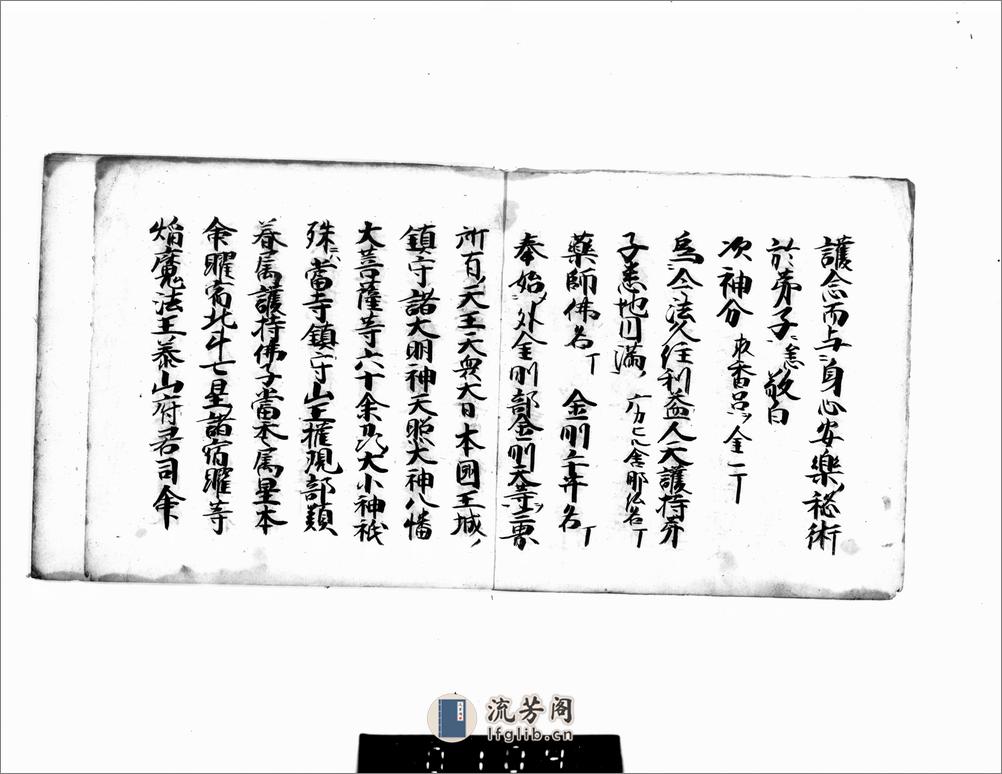 護念而与身心安樂秘術
於弟子ニ敬白
次神分 取香呂ツ金一丁
為令法久住利益人天護持弟
子悉地円満 广カヒル舎那仏名丁
藥師佛名丁 金剛手名丁
奉始外金剛部金剛天等三界
所有天王天衆大日本國王城ノ
鎮守諸大明神天照大神八幡
大菩薩等六十余大小神祇
殊ニハ當寺鎮守山王權現部類
眷属護持佛子當本属星本
命曜宿北斗七星諸宿曜等
焔魔法王泰山府君司命
流芳阁
lfglib.cn
0104